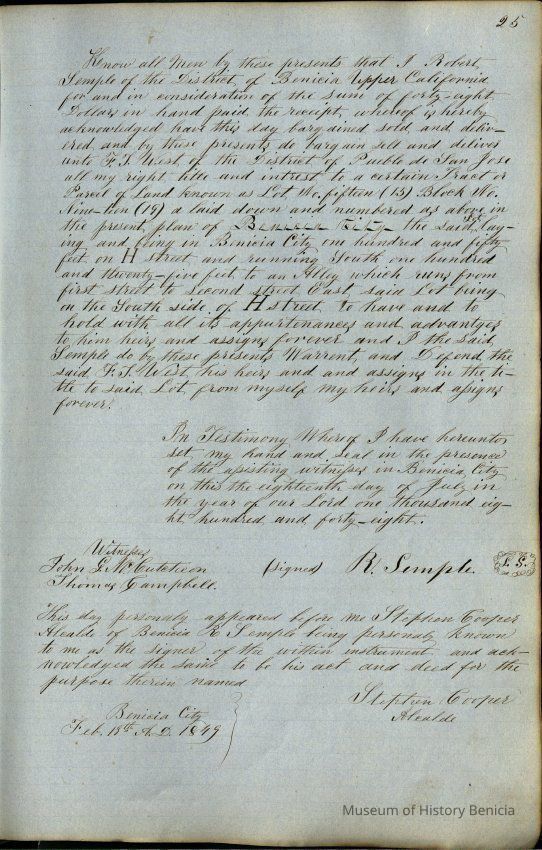 25
Know all Men by these presents that I Robert
Semple of the District of Benicia Upper California
for and in consideration of the sum of forty-eight
Dollars in hand paid the receipt whereof is hereby
acknowledged have this day bargained sold and deliv-
ered and by these presents do bargain sell and deliver
unto F. J. West of the District of Pueblo de San Jose
all my right title and intrest to a certain Tract or
Parcel of Land known as Lot No. fifteen (15) Block No.
Nine-teen (19) a laid down and numbered as above in
the present plan of Benicia City the said Lot lay-
ing and being in Benicia City one hundred and fifty
feet on H street and running South one hundred
and twenty-five feet to an Alley which runs from
first street to Second street East said Lot being
on the South side of H street To have and to
hold with all its appurtonances and advantges
to him heirs and assigns forever and I the said
Semple do by these presents Warrent and Defend the
said F. J. West his heirs and and assigns in the ti-
tle to said Lot from myself my heirs and assigns
forever.
In Testimony Whereof I have hereunto
set my hand and seal in the presence
of the assisting witnesses in Benicia City
on this the eighteenth day of July in
the year of our Lord one thousand eig-
ht hundred and forty-eight.
Witnesses
John McCutcheon (signed) R. Semple L.S.
Thomas Campbell.
This day personaly appeared before me Stephen Cooper
Alcalde of Benicia R Semple being personaly known
to me as the signer of the within instrument and ack-
nowledged the same to be his act and deed for the
purpose therein named
Stephen Cooper
Alcalde
Benicia City
Feb. 15th A.D. 1849
Museum of History Benicia